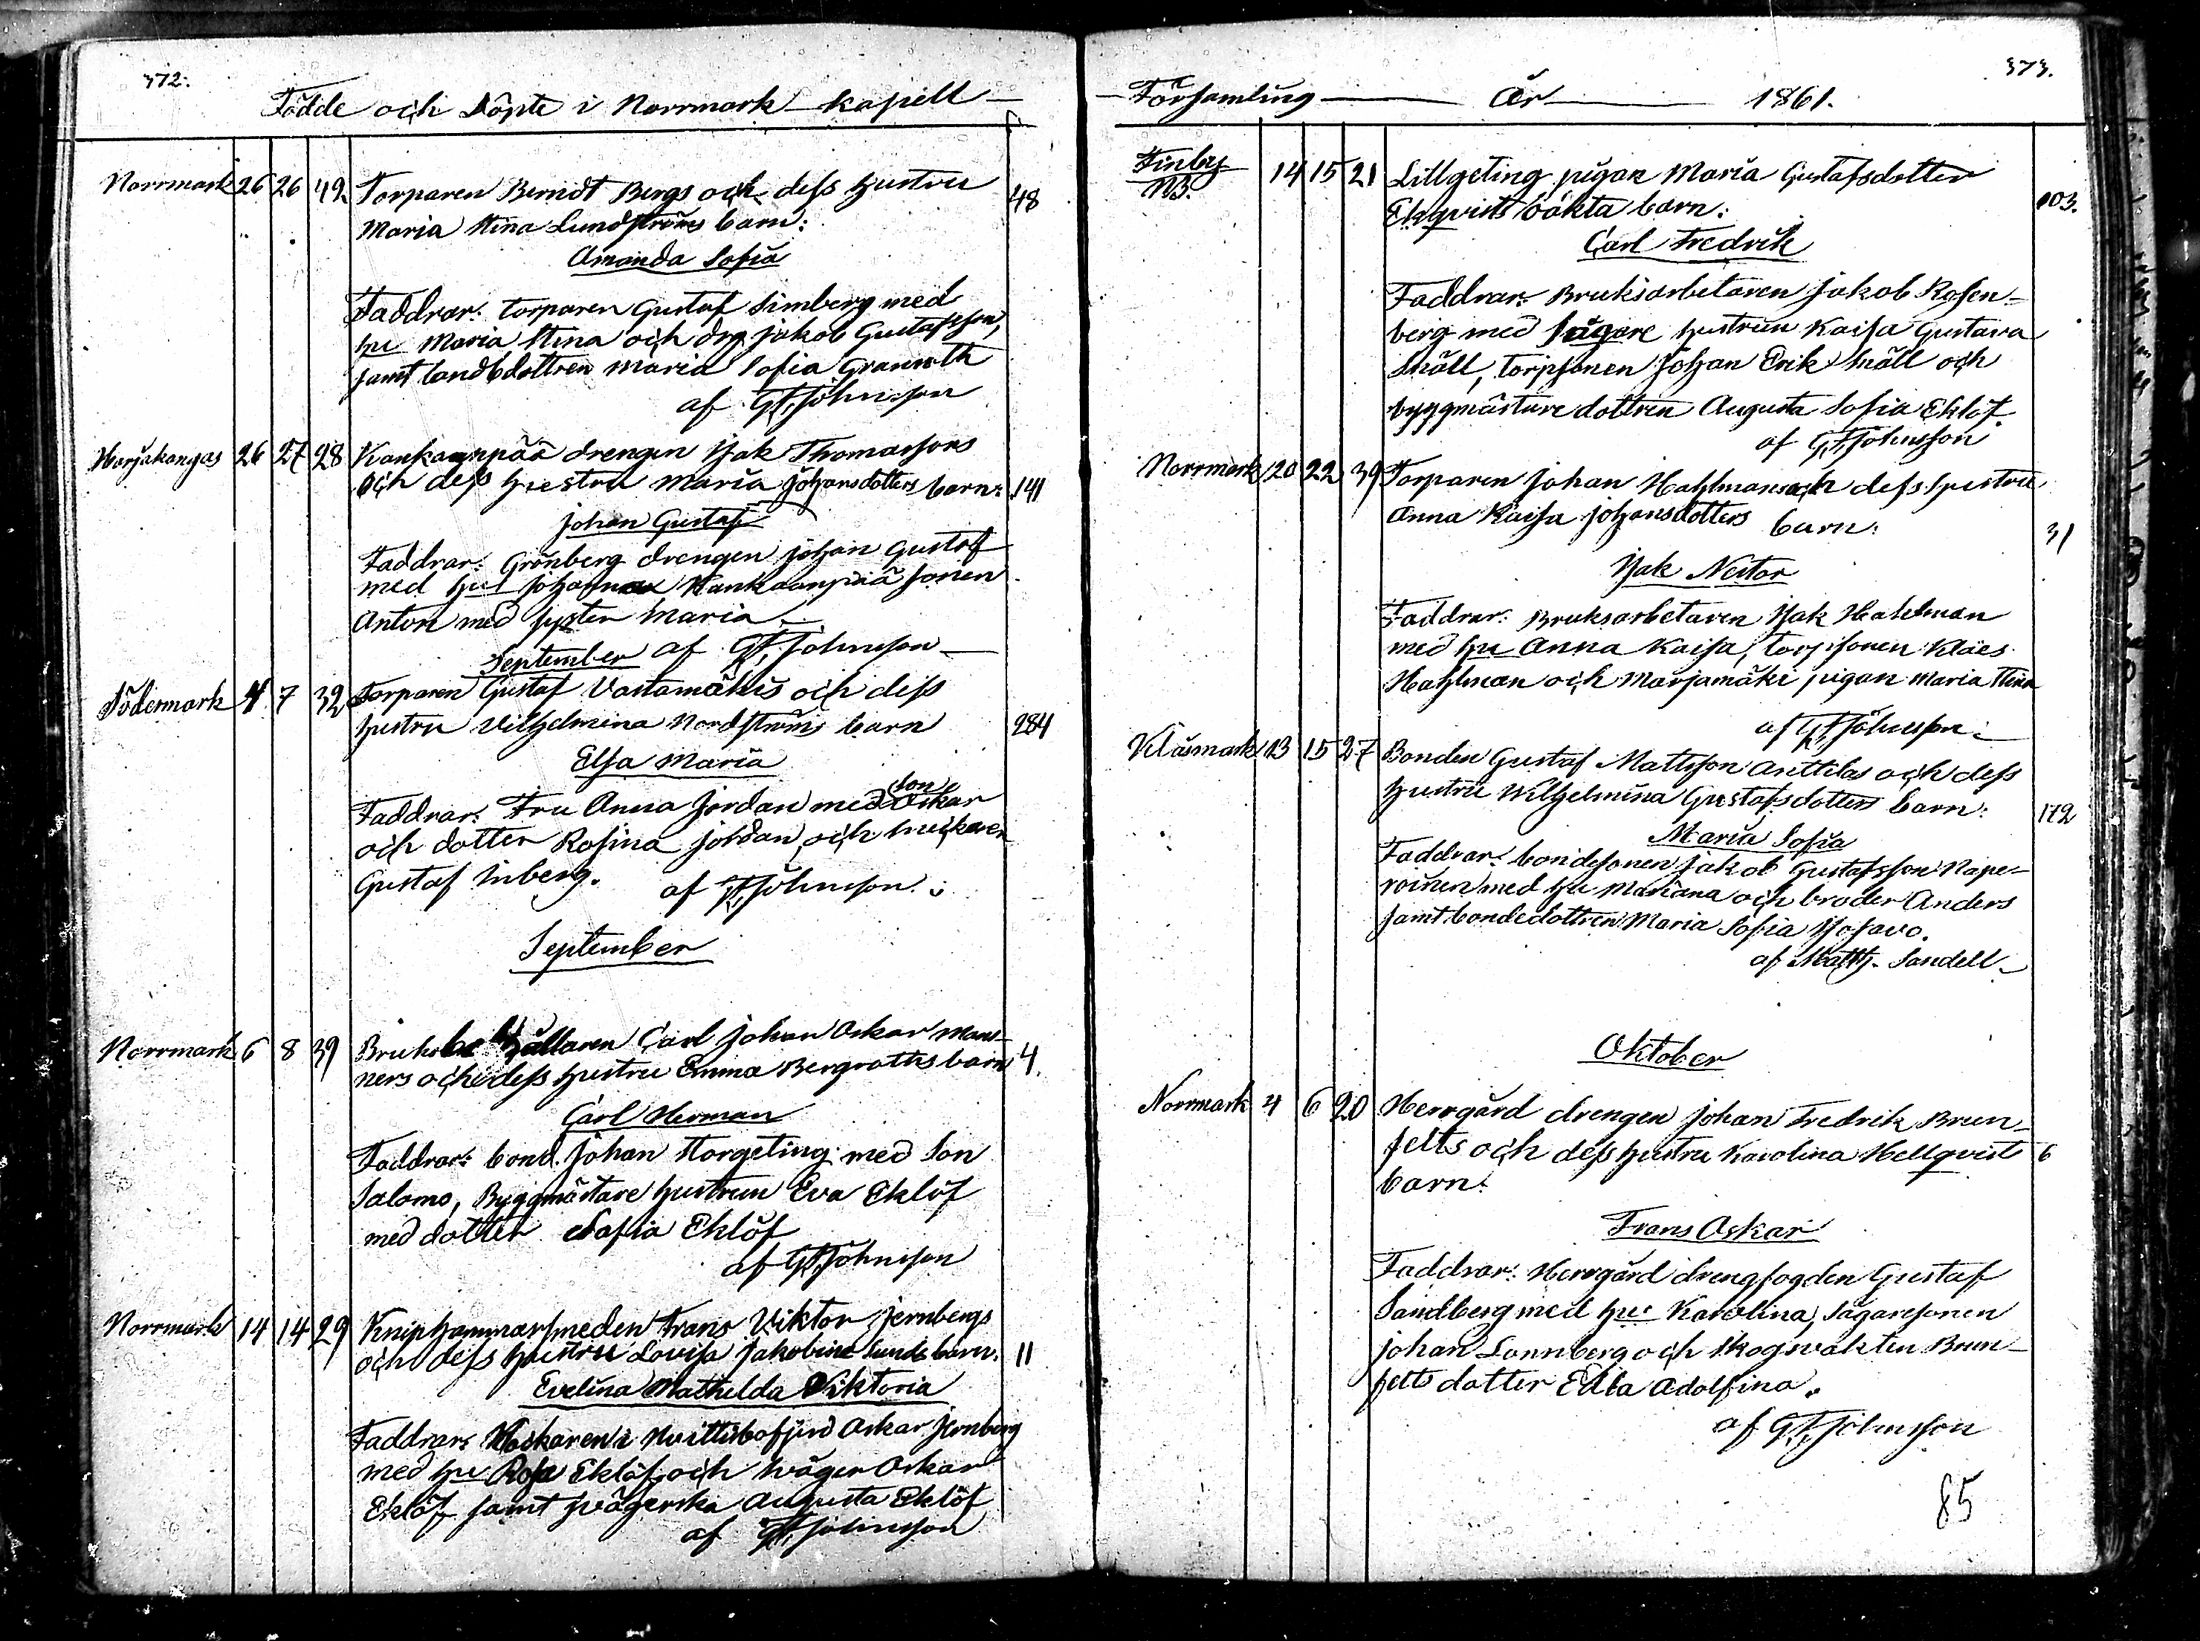 372.
Födde och Döpte i Norrmark kapell
Norrmark 26 26 42 Torparen Berndt Bergs och dess hustru 48
Maria Stina Lundströms barn:
Amanda Sofia
Faddrar: torparen Gustaf Simberg med
hu Maria Stina och drg Jakob Gustafsson,
samt landbdottren Maria Sofia Granroth
af GFJohnsson
Harjakangas 26 27 28 Kankaanpää drengen Isak Thomassons
och dess hustru Maria Johansdotters barn: 141
Johan Gustaf
Faddrar: Grönberg drengen Johan Gustaf
med hu Johanna Kankaanpää sonen
Anton med syster Maria
September af GFJohnsson
Södermark 4 7 32 Torparen Gustaf Vastamäkis och dess
hustru Vilhelmina Nordströms barn 284
Elsa Maria
son
Faddrar: Fru Anna Jordan med Oskar
och dotter Rosina Jordan och snickaren
Gustaf Inberg. af GFJohnsson
September
Norrmark 6 8 39 Bruksbehållaren Carl Johan Oskar Mons-
ners och dess hustru Emma Bergroths barn 4.
Carl Herman
Faddrar: bond. Johan Storgeting med Son
Salomo, Byggmästare hustrun Eva Eklöf
med dotter Sofia Eklöf
af GFJohnsson
Norrmark 14 14 29 Kniphammarsmeden Frans Viktor Jernbergs
och dess hustru Lovisa Jakobina Lunds barn. 11
Evelina Mathilda Viktoria
Faddrar: i Hvittisbofjerd Oskar Jernberg
med hu Rosa Eklöf och svåger Oskar
Eklöf samt svägerska Augusta Eklöf
af GFJohnsson
373.
Församling År 1861.
Finby 14 15 21 Lillgeting pigan Maria Gustafsdotter
NB. Ekqvists oäkta barn: 103.
Carl Fredrik
Faddrar: Bruksarbetaren Jakob Rosen-
berg med sågare hustrun Kaisa Gustava
Snäll, torpsonen Johan Erik Snäll och
byggmästare dottren Augusta Sofia Eklöf.
af GFJohnsson
Norrmark 20 22 39 Torparen Johan Hahlmans och dess hustru
Anna Kaisa Johansdotters barn: 31
Isak Nestor
Faddrar: Bruksarbetaren Isak Hahlman
med hu Anna Kaisa, torpsonen Kläes
Hahlman och Marjamäki pigan Maria Stina
af GFJohnsson
Klåsmark 13 15 27 Bonden Gustaf Mattsson Anttilas och dess
hustru Wilhelmina Gustafsdotters barn: 172
Maria Sofia
Faddrar: bondesonen Jakob Gustafsson Kape-
roinen med hu Mariana och broder Anders
samt bondedottren Maria Sofia Isosavo.
af Matth. Sandell
Oktober
Norrmark 4 6 20 Herrgård drengen Johan Fredrik Brun-
felts och dess hustru Karolina Hellqvists 6
barn:
Frans Oskar
Faddrar: Herrgård drengfogden Gustaf
Sandberg med hu: Karolina, Sågaresonen
Johan Lönnberg och Skogsvakten Brun-
felts dotter Edla Adolfina.
af GFJohnsson
85